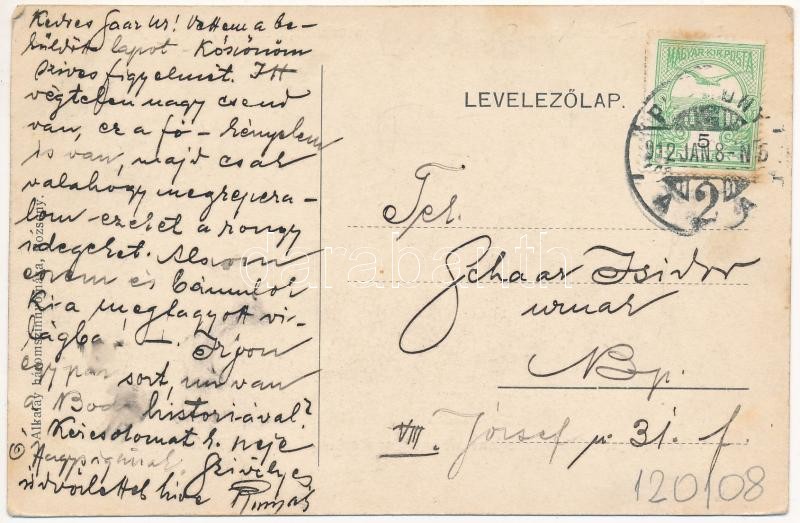 Kedves Gaar Ur! Vettem a be-
küldött lapot. Köszönöm
szives figyelmét. Itt
végtelen nagy csend
van, ez a fő- kényelem
is van, majd csak
valahogy megrepera-
lom ezeket a rongy
idegeket. Alszom
eszem és bámulok
ki a megfagyott vi-
lágba. Irjon
egy pár sort, mi van
a Bod historiával?
Kézcsókomat k. neje
Szivélyes
üdvözlettel híve
Alkalay háromszinnyomása, Pozsony.
LEVELEZŐLAP.
MAGYAR·KIR·POSTA
5
912 JAN. 8-N
2
Schaar Isidor
urnak
Bp.
VIII József u. 31. f.
120108
darabanth